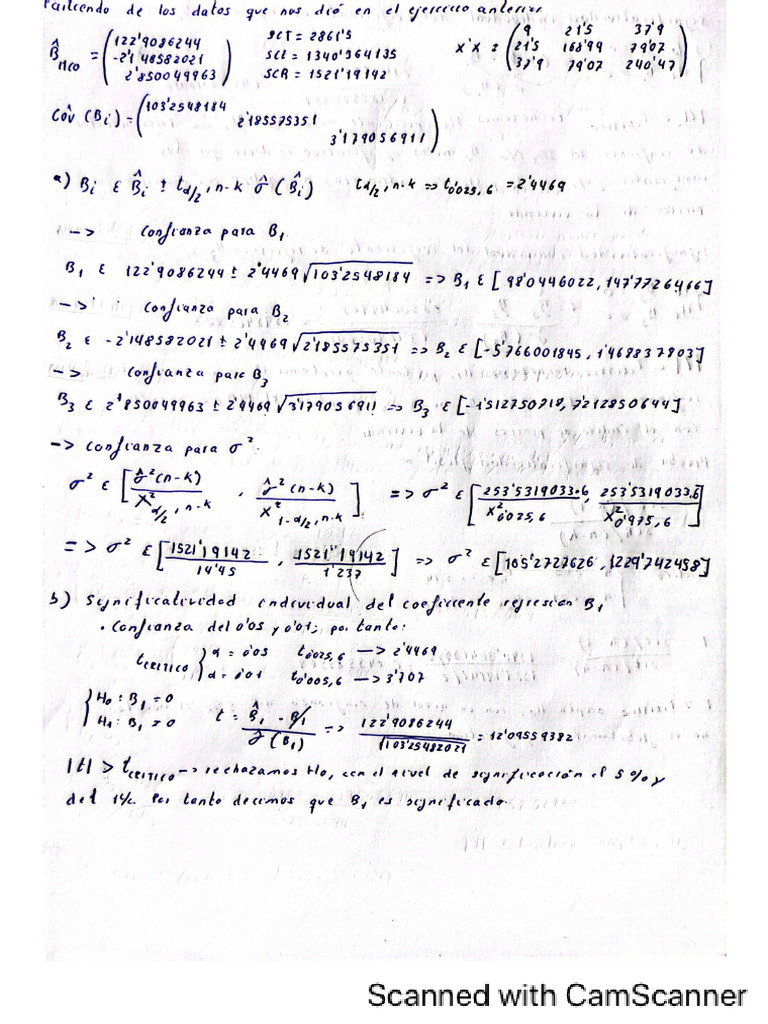 Partiendo de los datos que nos dió en el ejercicio anterior
B̂MCO = (122'9086244 / -2'148582021 / 2'850049963) SCT = 2861'5 SCE = 1340'364135 SCR = 1521'19142 X'X = (9 21'5 37'9 / 21'5 168'99 79'07 / 37'9 79'07 240'47)
Côv (Bi) = (103'2548184 2'185575351 3'179056911)
a) Bi ∈ B̂i ± tα/2, n-k σ̂(B̂i) tα/2, n-k => t0'025,6 = 2'4469
-> Confianza para B1
B1 ∈ 122'9086244 ± 2'4469 √103'2548184 => B1 ∈ [98'0446022, 147'7726466]
-> Confianza para B2
B2 ∈ -2'148582021 ± 2'4469 √2'185575351 => B2 ∈ [-5'766001845, 1'468837803]
-> Confianza para B3
B3 ∈ 2'850049963 ± 2'4469 √3'179056911 => B3 ∈ [-1'512750718, 7'212850644]
-> Confianza para σ².
σ² ∈ [σ̂²(n-k) / X²α/2, n-k , σ̂²(n-k) / X²1-α/2, n-k] => σ² ∈ [253'5319033·6 / X²0'025,6 , 253'5319033·6 / X²0'975,6]
=> σ² ∈ [1521'19142 / 14'45 , 1521'19142 / 1'237] => σ² ∈ [105'2727626, 1229'742458]
b) Significatividad individual del coeficiente regresión B1
• Confianza del 0'05 y 0'01; por tanto:
tCRITICO { α = 0'05 t0'025,6 -> 2'4469
α = 0'01 t0'005,6 -> 3'707
{ H0 : B1 = 0
H1 : B1 ≠ 0 t = B̂1 - B1 / σ̂(B1) => 122'9086244 / √103'25482021 = 12'09559382
|t| > tCRITICO -> rechazamos H0, con el nivel de significación el 5% y
del 1%. Por tanto decimos que B1 es significado.
Scanned with CamScanner